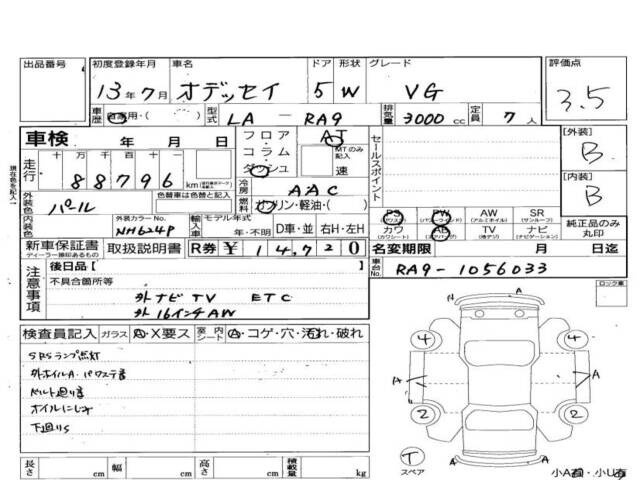 出品番号 初度登録年月 車名 ドア 形状 グレード 評価点
13年7月 オデッセイ 5 W VG 3.5
車歴 自家用・( ) 型式 LA - RA9 排気量 3000 cc 定員 7 人
車検 年 月 日
フロア・コラム・ダッシュ AT MTのみ記入 速
セールスポイント
[外装] B
[内装] B
走行 十万千百十一
88796 km
冷房 AAC
燃料 ガソリン・軽油・( )
現在色を記入
外装色 パール
内装色
色替車は色替と記入
外装カラーNo. NH624P
輸入車 モデル年式 年・不明 D車・並 右H・左H
PS PW AW SR
(パワステ) (パワーウィンドウ) (アルミホイル) (サンルーフ)
カワ AB TV ナビ
(カワシート) (エアバッグ) (地デジ) (ナビゲーション)
純正品のみ丸印
新車保証書 取扱説明書 R券 ¥ 14,720
ディーラー捺印あるもの
名変期限 月 日迄
車台No. RA9-1056033
注意事項
後日品[ ]
不具合箇所等
外ナビ TV ETC
外16インチAW
ロック車
検査員記入 ガラス A・X要ス 室内シート A・コゲ・穴・汚れ・破れ
SRSランプ点灯
外ホイルA・パワステ音
ベルト廻り音
オイルにじみ
下廻りS
A
4 4
A A
2 2
T
スペア
A
小A有・小U有
長さ cm 幅 cm 高さ cm 積載量 kg